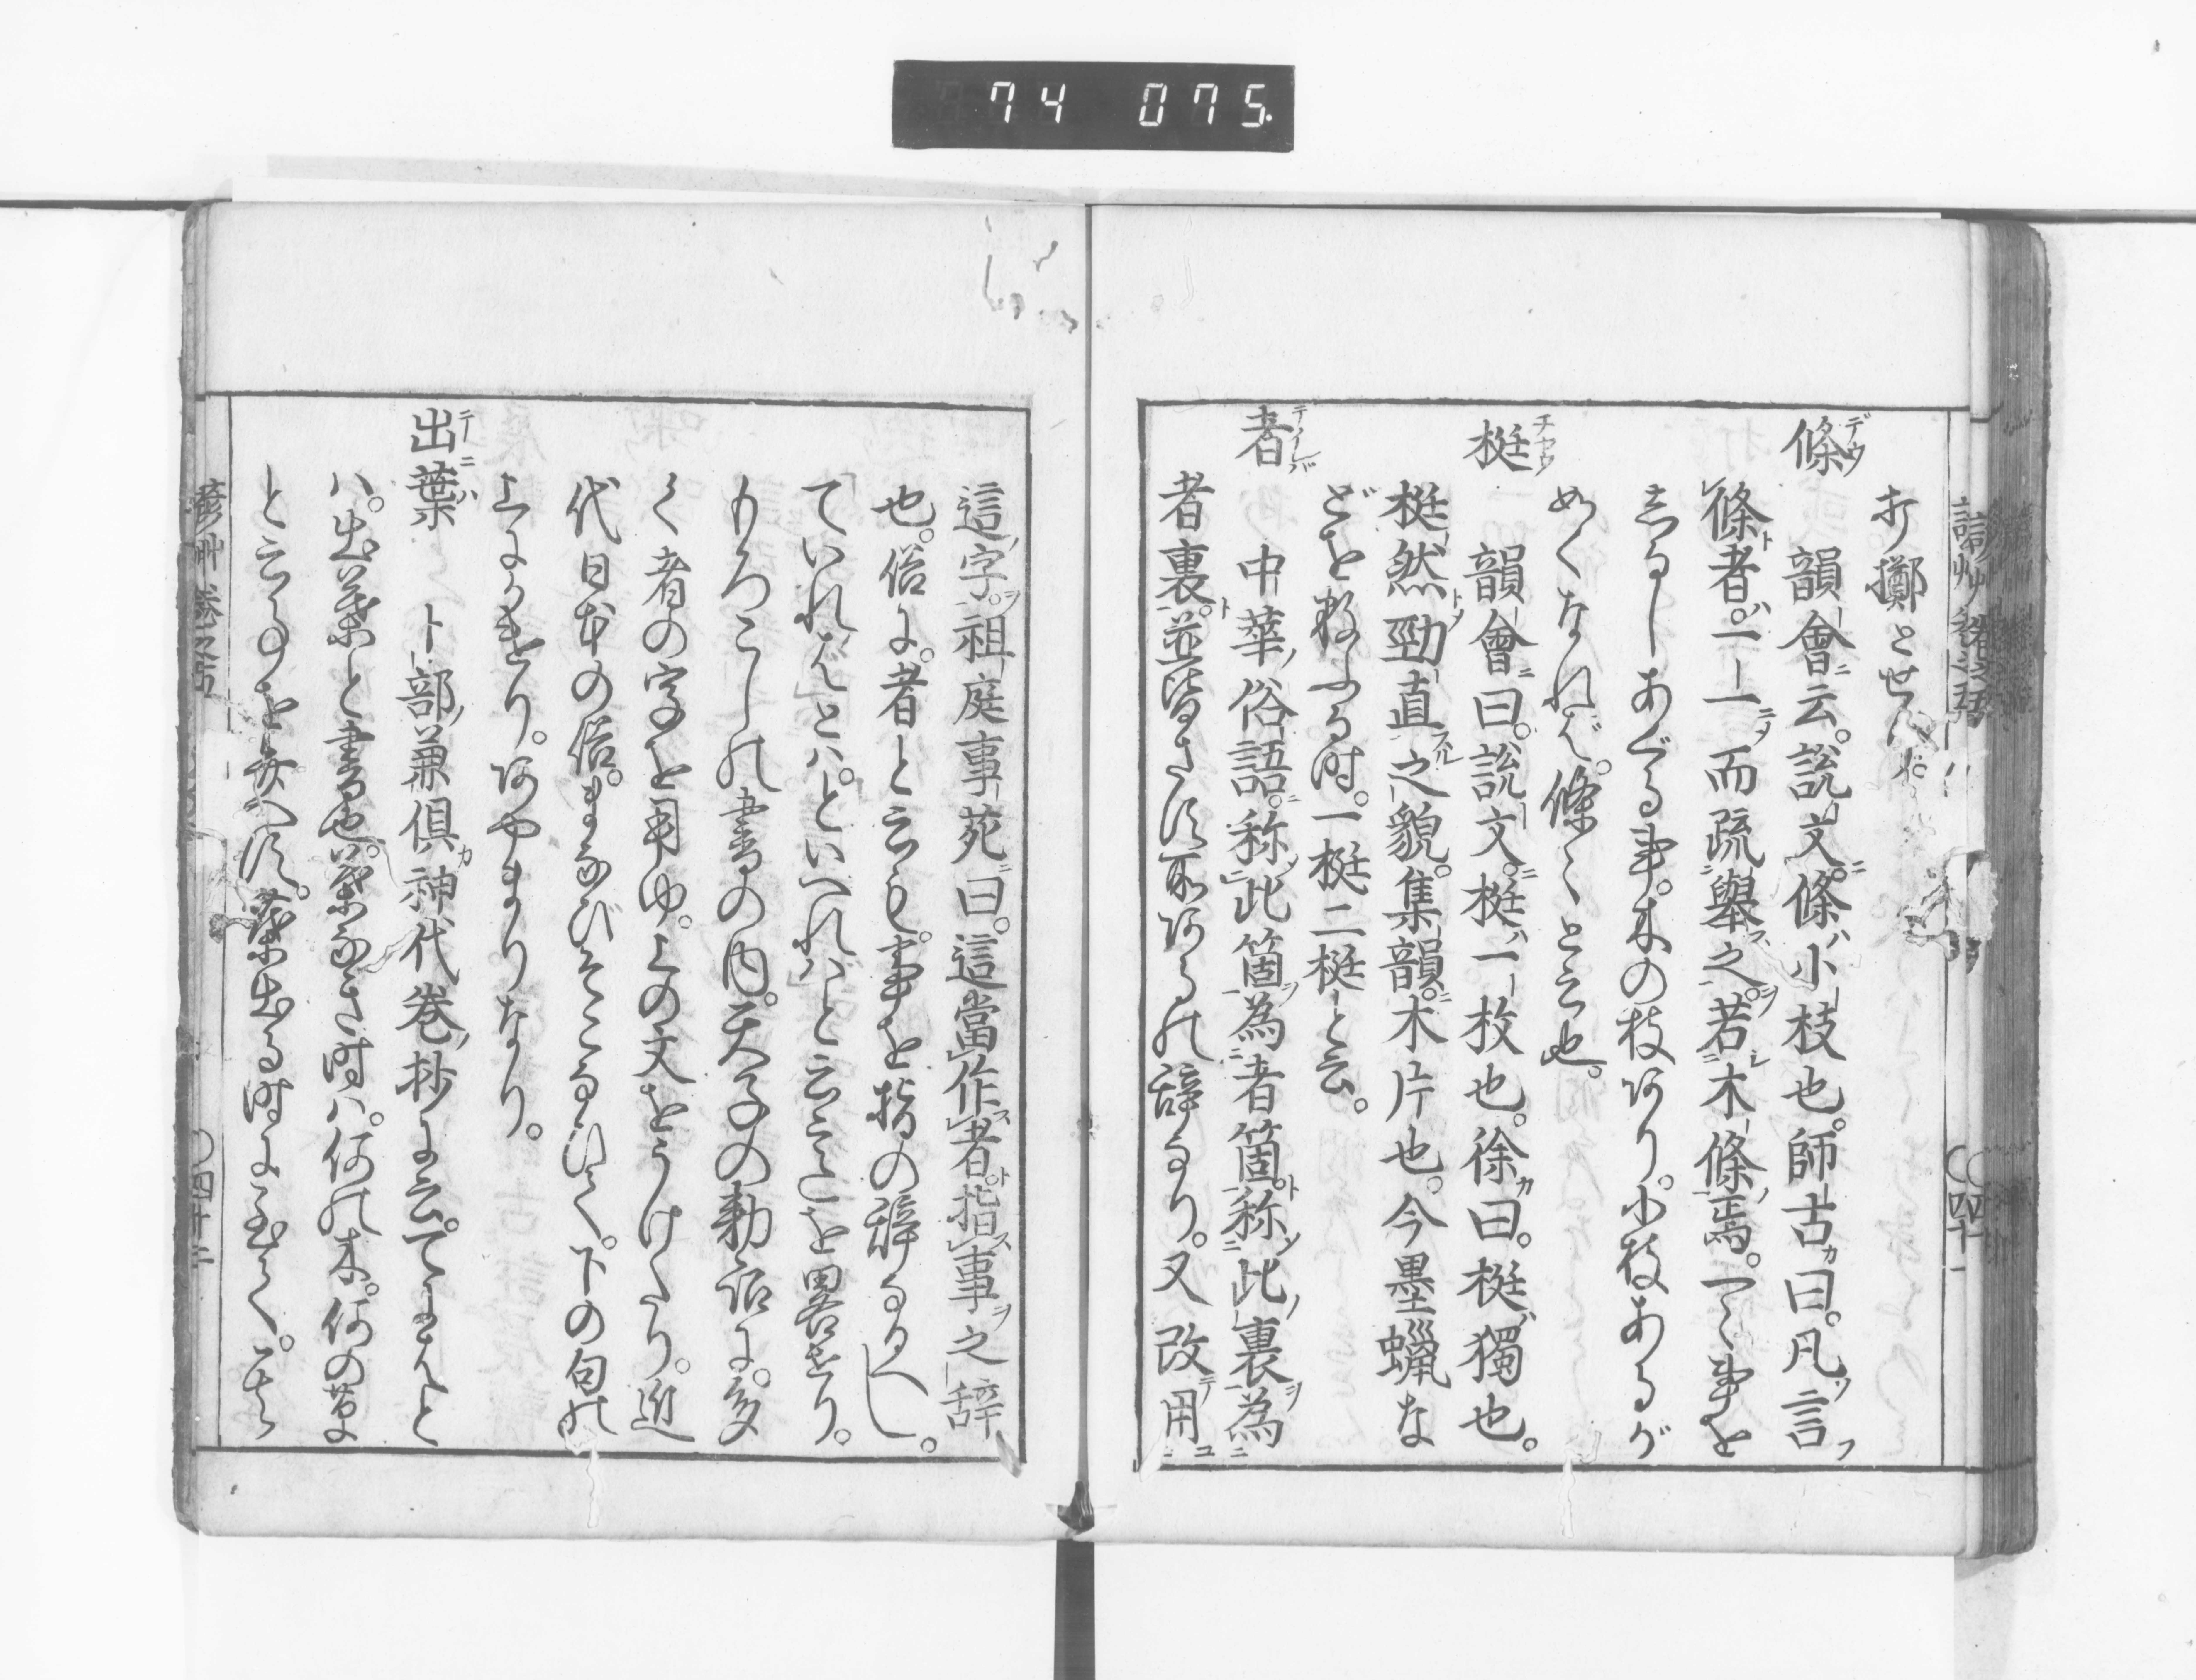 74 075
打擲とせハ
條 韻會云。說文。條ハ小枝也。師古曰。凡言
條者。一一而疏舉之。若木條焉。一〻事を
志るしあぐる事。木の枝阿り。小枝あるが
如くなれば。條〻と云也。
梃 韻會曰。說文。梃ハ一枚也。徐曰。梃獨也。
梃然勁直之貌。集韻。木片也。今墨蠟な
どを數ふる時。一梃二梃と云。
者 中華俗語。称此箇為者箇。称此裏為
者裏。並皆さす所阿るの辞なり。又改用
這字。祖庭事苑曰。這當作者。指事之辞
也。俗に。者と云も。事を指の辞なるへし。
ていれば」とハ。といへれハ」と云ことを畧せり。
もろこしの書の内。天子の勅詔に。多
く者の字を用ゆ。上の文をうけたり。近
代日本の俗。まなびそこなひて。下の句の
上にかけり。阿やまりなり。
出葉 卜部兼俱神代巻抄に云。てにはと
ハ。出葉と書也。葉なき時ハ。何の木。何の草
と云事を弁へず。葉出る時に至て。
諺艸 卷之五 〇四十一
諺艸 卷之五 〇四十二